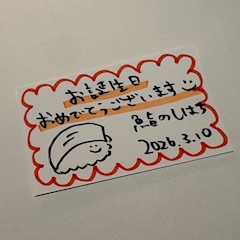 お誕生日
おめでとうございます
鮨のしはち
2026.3.10